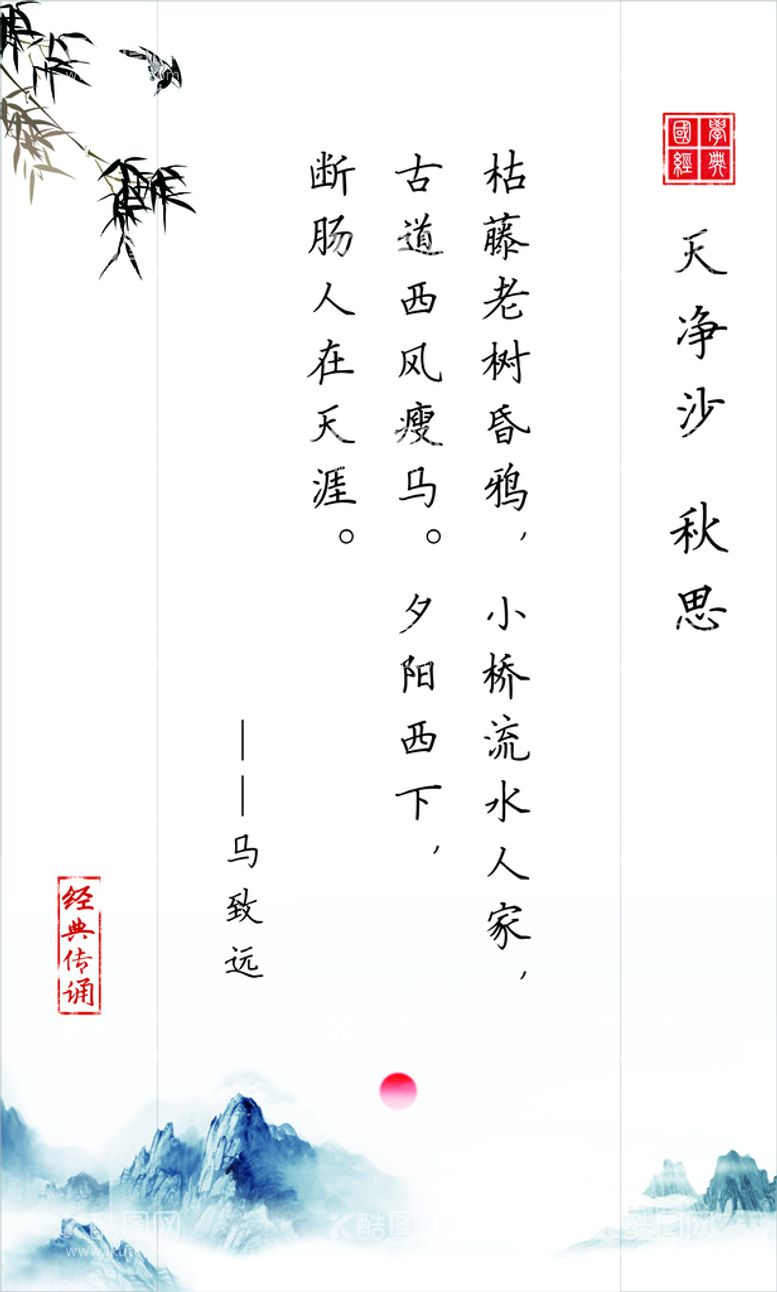 國學經典
天净沙 秋思
枯藤老树昏鸦，小桥流水人家，
古道西风瘦马。夕阳西下，
断肠人在天涯。
——马致远
经典传诵
酷图网
酷图网
酷图网